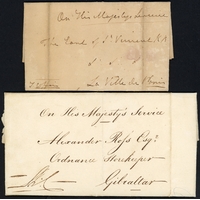 On His Majestys Service
The Earl of St Vincent K.B
La Ville de Paris
On His Majesty's Service
Alexander Ross Esqr.
Ordnance Storekeeper
Gibraltar